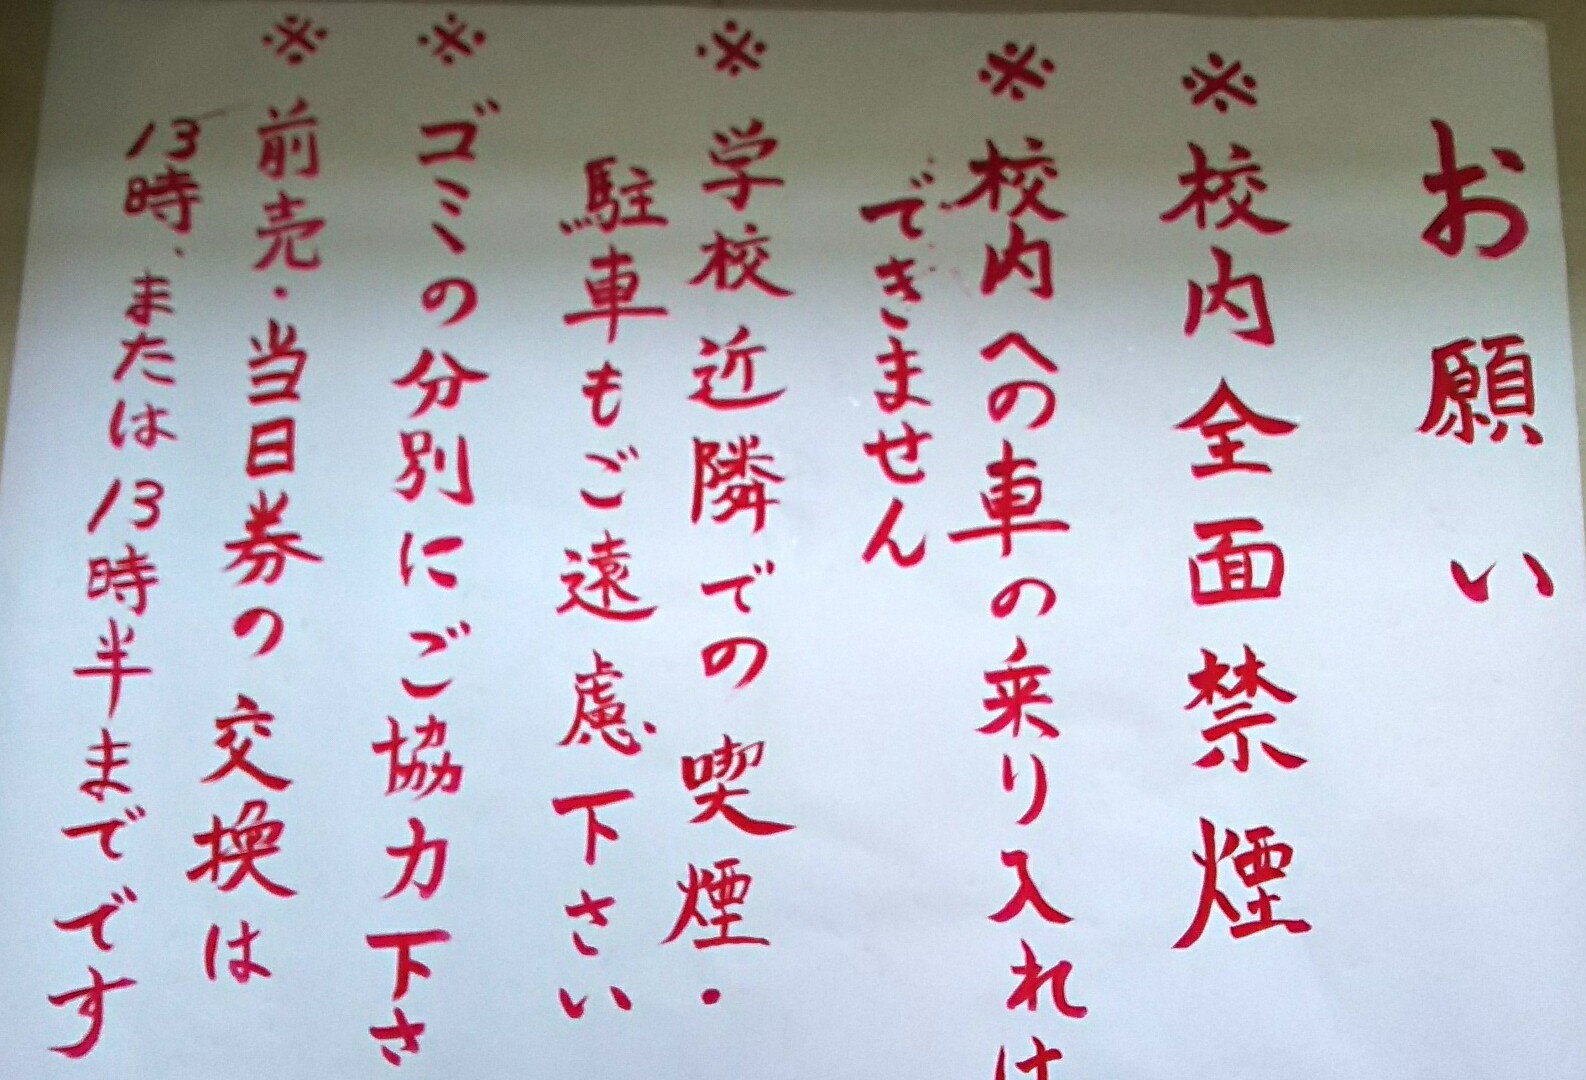 お願い
※校内全面禁煙
※校内への車の乗り入れは
できません
※学校近隣での喫煙・
駐車もご遠慮下さい
※ゴミの分別にご協力下さ
※前売・当日券の交換は
13時、または13時半までです